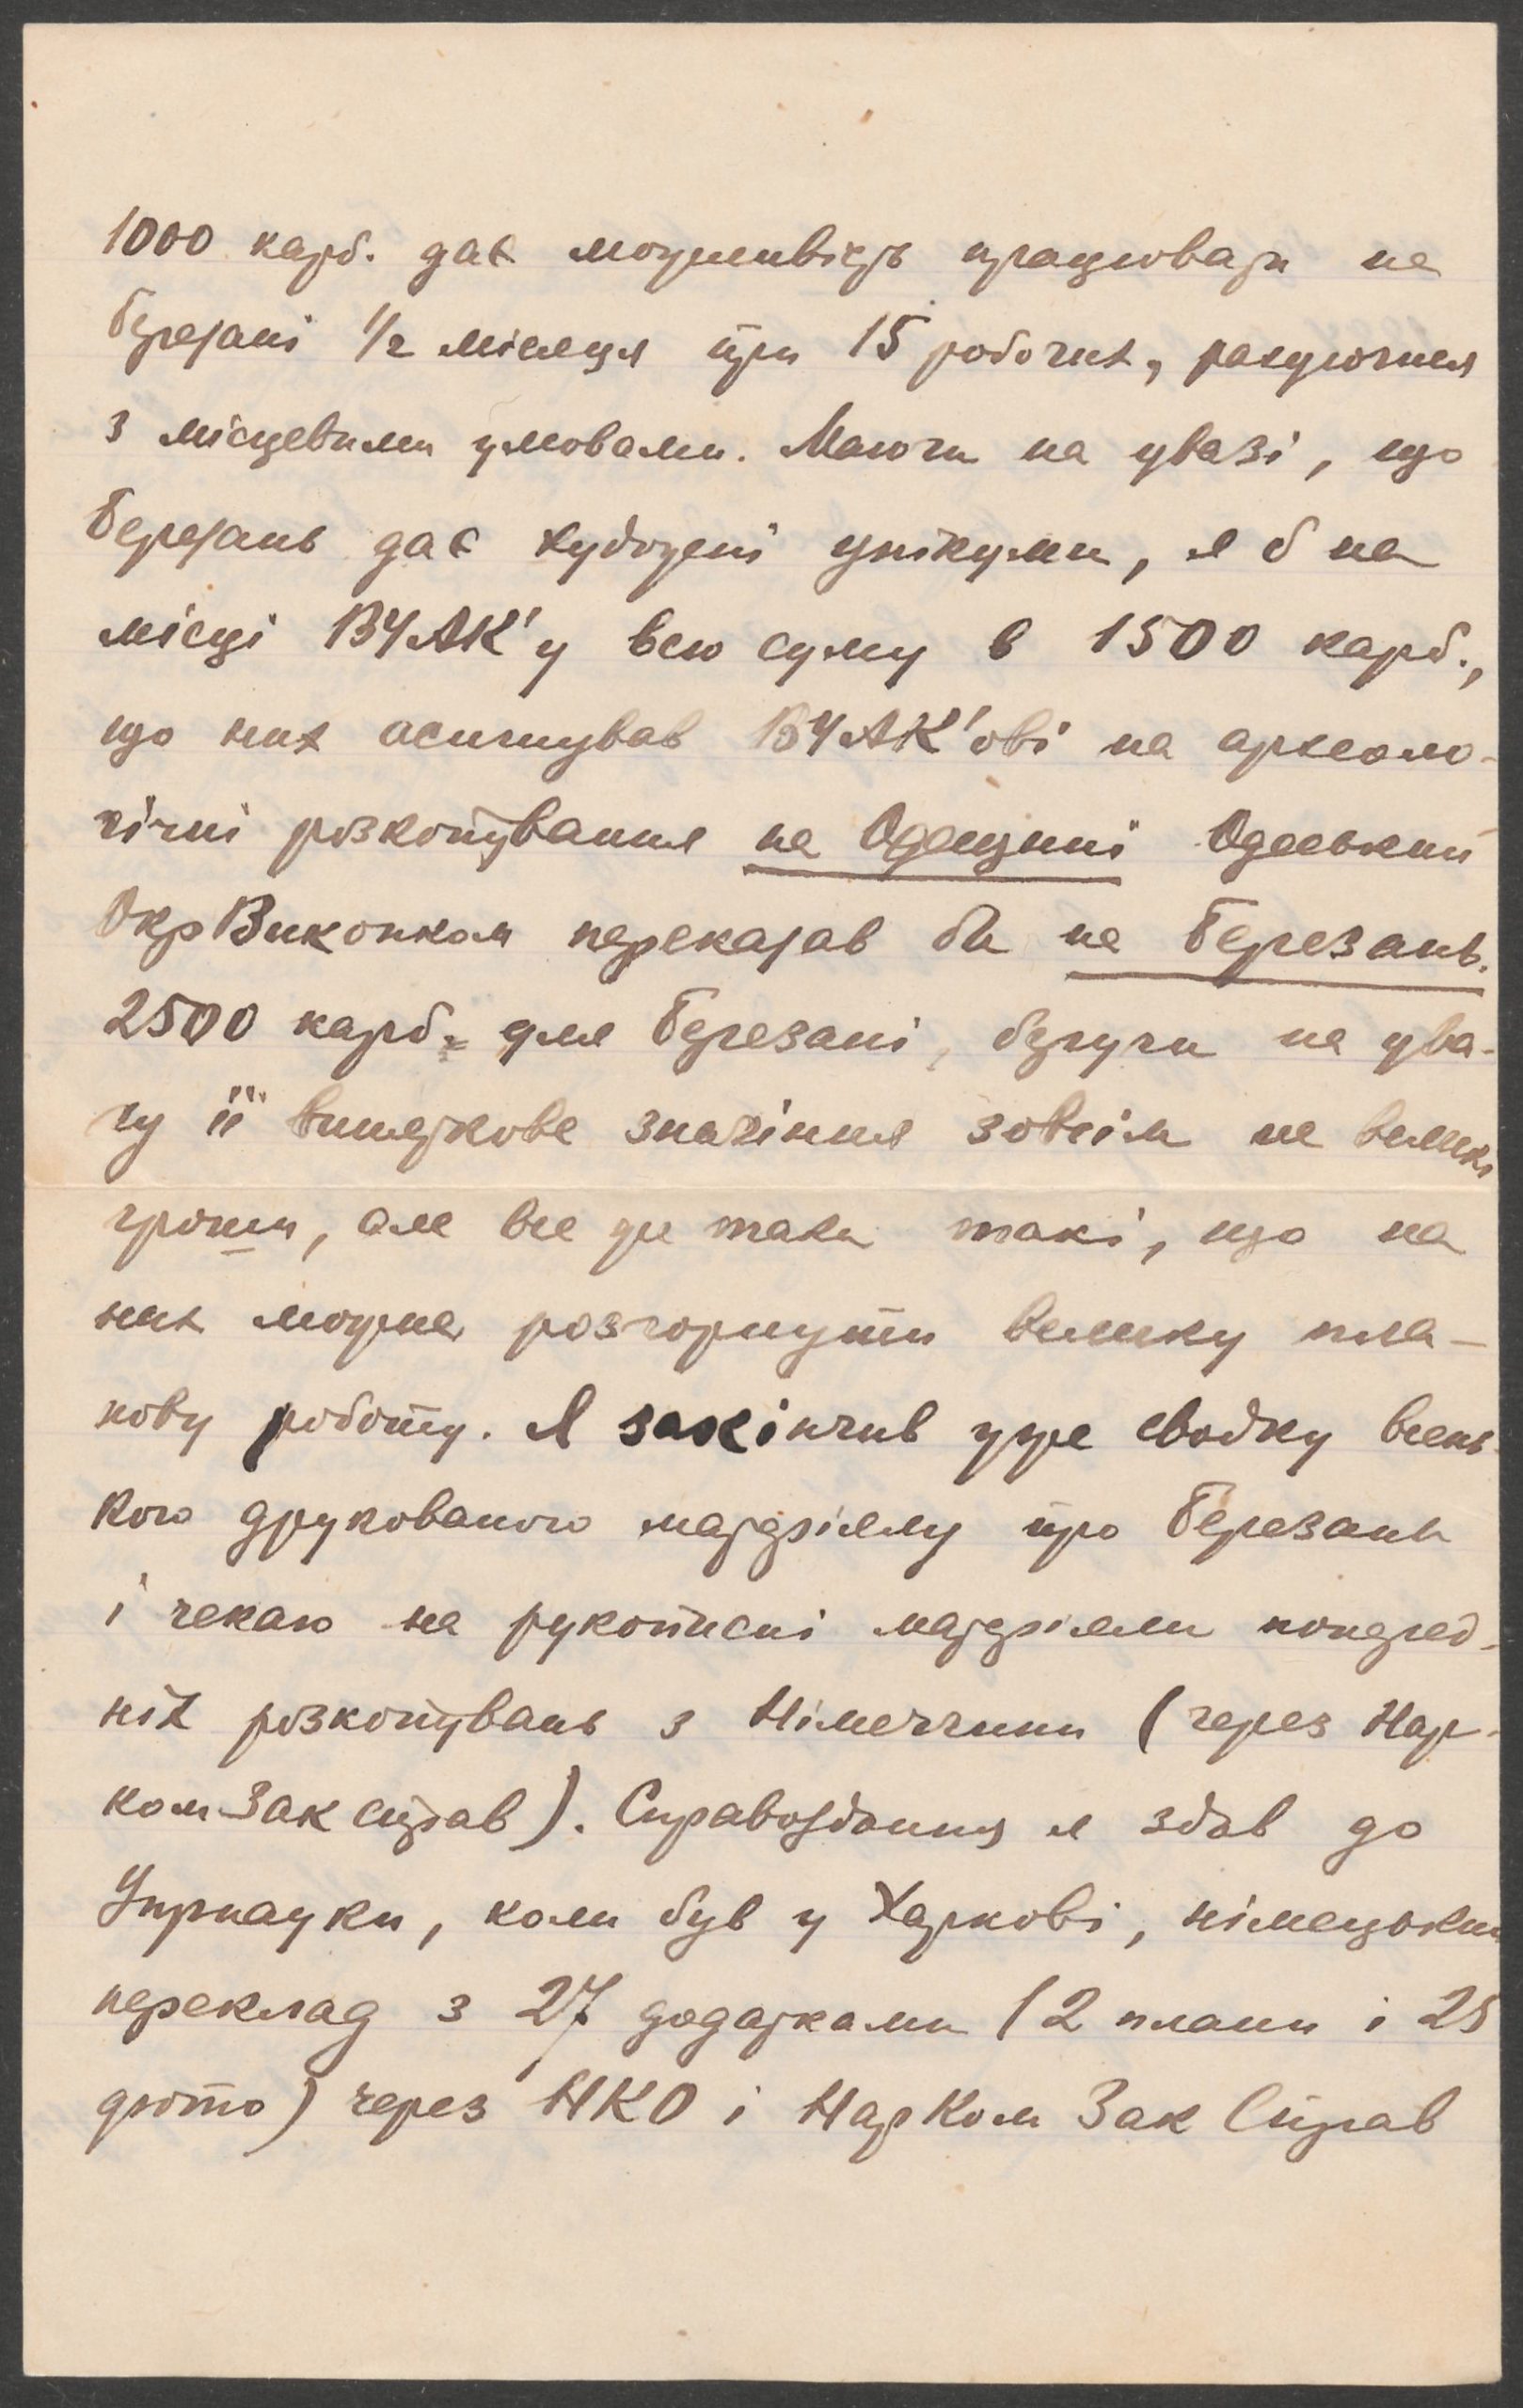 1000 карб. дає можливість працювати на
Березані 1/2 місяця при 15 робочих, рахуючися
з місцевими умовами. Маючи на увазі, що
Березань дає художні унікуми, я б на
місці ВУАК'у всю суму в 1500 карб.,
що них асигнував ВУАК'ові на археоло-
гічні розкопування на Одещині Одеський
ОкрВиконком переказав би на Березань.
2500 карб. для Березані, беручи на ува-
гу її виняткове значіння зовсім не великі
гроши, але все же таки такі, що на
них можна розгорнути велику пла-
нову роботу. Я закінчив уже сводку всень-
кого друкованого матеріялу про Березань
і чекаю на рукописні матеріяли поперед-
ніх розкопувань з Німеччини (через Нар-
ком Зак справ). Справоздання я здав до
Упрнауки, коли був у Харкові, німецький
переклад з 27 додатками (2 плани і 25
фото) через НКО і НарКом Зак Справ